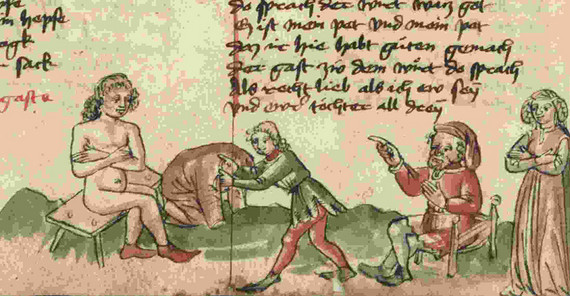 m hepfe
sack
gaste
do sprach der wirt wan got
ist mein vnd mein
daz ir hie habt guten gemach
Der gast zw dem wirt do sprach
Als recht lieb als ich ew sey
vnd ewr tochter all drey